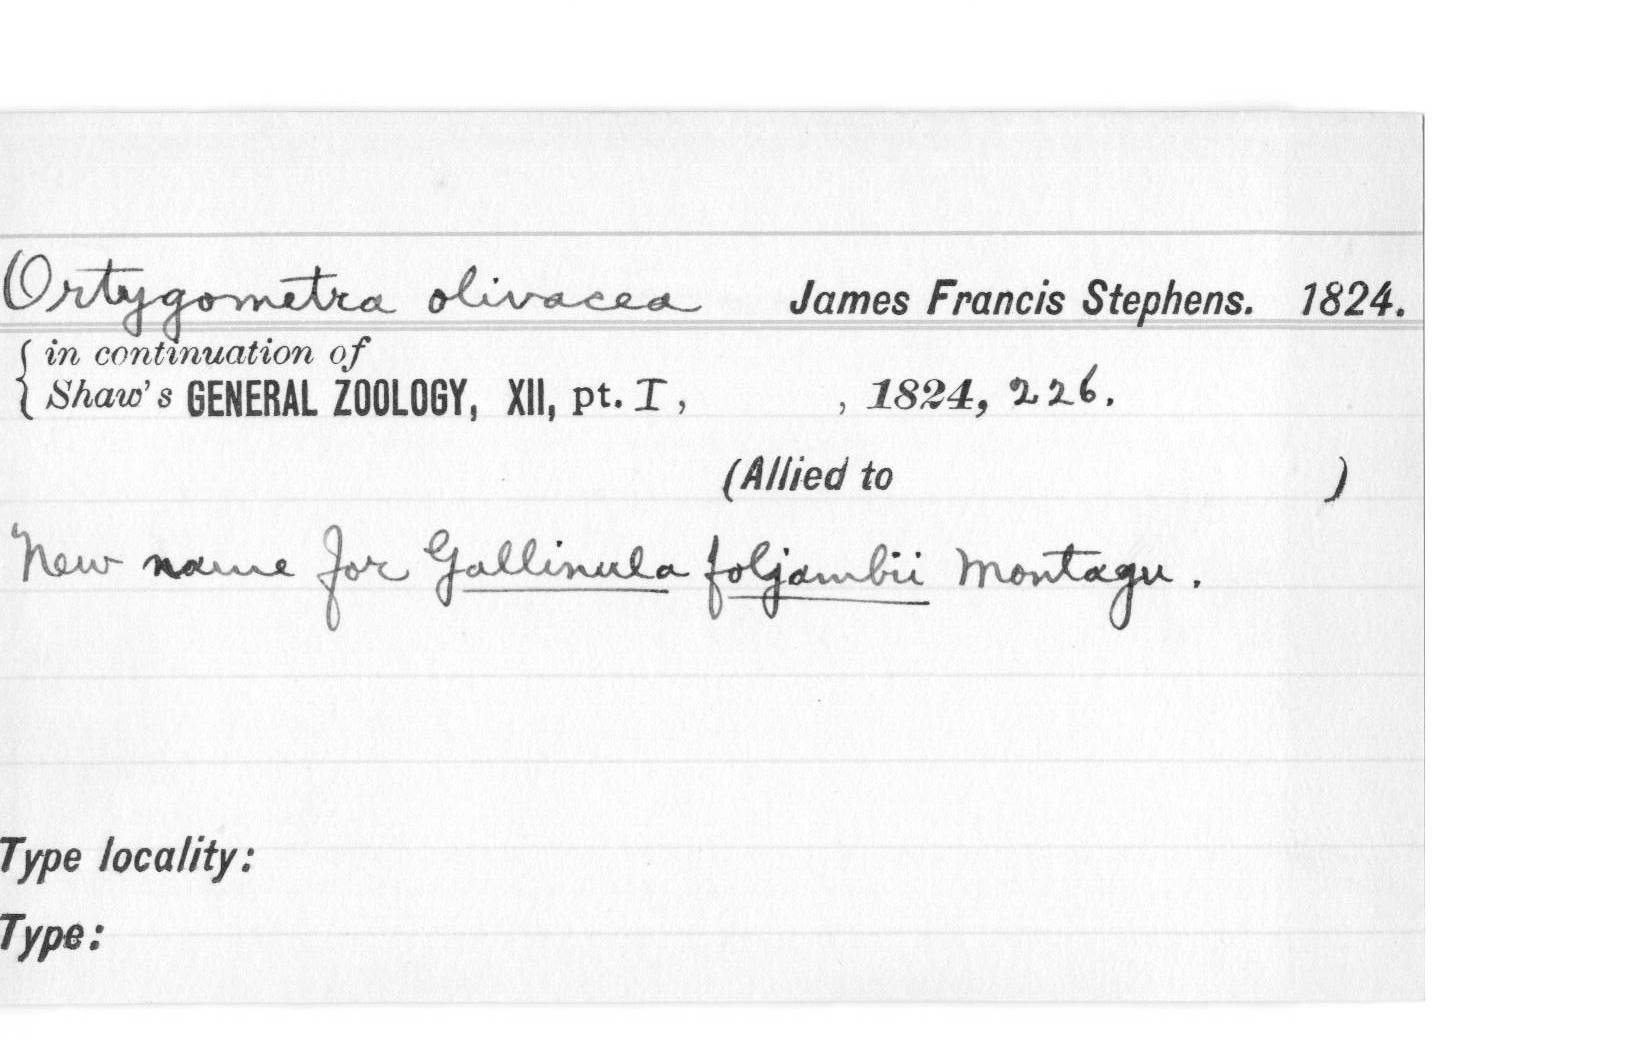 Ortygometra olivacea James Francis Stephens. 1824.
{ in continuation of
Shaw's GENERAL ZOOLOGY, XII, pt. I, , 1824, 226.
(Allied to )
New name for Gallinula foljambii Montagu.
Type locality:
Type: